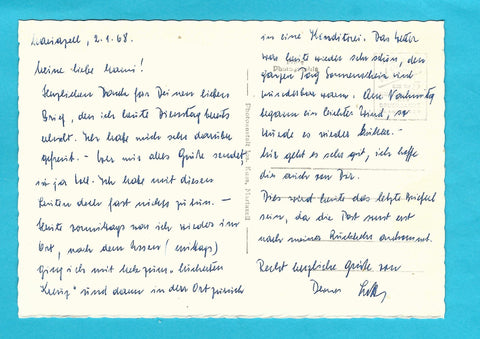 Mariazell, 2.1.68.
Meine liebe Mami!
Herzlichen Dank für Deinen lieben
Brief, den ich heute Dienstag bereits
erhielt. Ich habe mich sehr darüber
gefreut. - Wer mir alles Grüße sendet
ist ja toll. Ich habe mit diesen
Leuten doch fast nichts zu tun. -
Heute vormittags war ich wieder im
Ort, nach dem Essen (mittags)
ging ich mit
Kreuz" und dann in den Ort zurück
in eine Konditorei. Das Wetter
war heute wieder sehr schön, den
ganzen Tag Sonnenschein und
wunderbar warm. Am Nachmittag
begann ein leichter Wind, so
wurde es wieder kühler. -
Mir geht es sehr gut, ich hoffe
die auch von Dir.
Dies wird heute das letzte Brieferl
sein, da die Post sonst erst
nach meiner Rückkehr ankommt.
Recht herzliche Grüße von
Deiner
Photographie
Photoanstalt Jos. Kuss, Mariazell